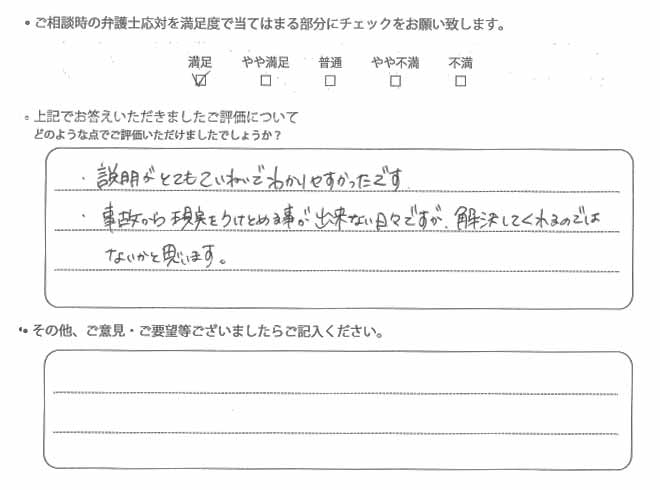 • ご相談時の弁護士応対を満足度で当てはまる部分にチェックをお願い致します。
満足 やや満足 普通 やや不満 不満
☑ □ □ □ □
◦ 上記でお答えいただきましたご評価について
どのような点でご評価いただけましたでしょうか?
・説明がとてもていねいでわかりやすかったです.
・事故から現実をうけとめる事が出来ない日々ですが、解決してくれるのでは
ないかと思います。
• その他、ご意見・ご要望等ございましたらご記入ください。